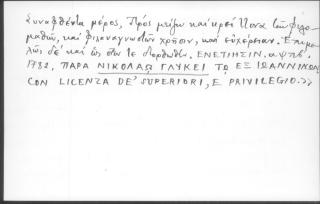 Συναφθέντα μέρος, Πρὸς μείζω καὶ κρείττονα τῶν φιλο-
μαθῶν, καὶ φιλαναγνωστῶν χρῆσιν, καὶ εὐχέρειαν. Ἐπιμε-
λῶς δὲ καὶ ὡς διορθωθέν. ΕΝΕΤΙΗΣΙΝ. αψπβ.
1782. ΠΑΡΑ ΝΙΚΟΛΑΩ ΓΛΥΚΕΙ ΤΩ ΕΞ ΙΩΑΝΝΙΝΩΝ
CON LICENZA DE' SUPERIORI, E PRIVILEGIO.>>